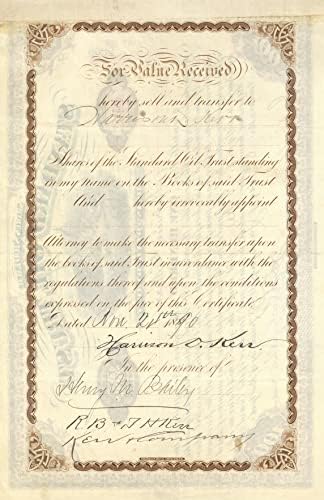 For Value Received
hereby sell and transfer to
Harrison Kerr
Shares of the Standard Oil Trust standing
in my name on the Books of said Trust
And hereby irrevocably appoint
Attorney to make the necessary transfer upon
the books of said Trust in accordance with the
regulations thereof and upon the conditions
expressed on the face of this Certificate
Dated Nov. 1890
Harrison D. Kerr.
In the presence of
Henry M Bailey
R B & T H Kerr
Kerr & Company